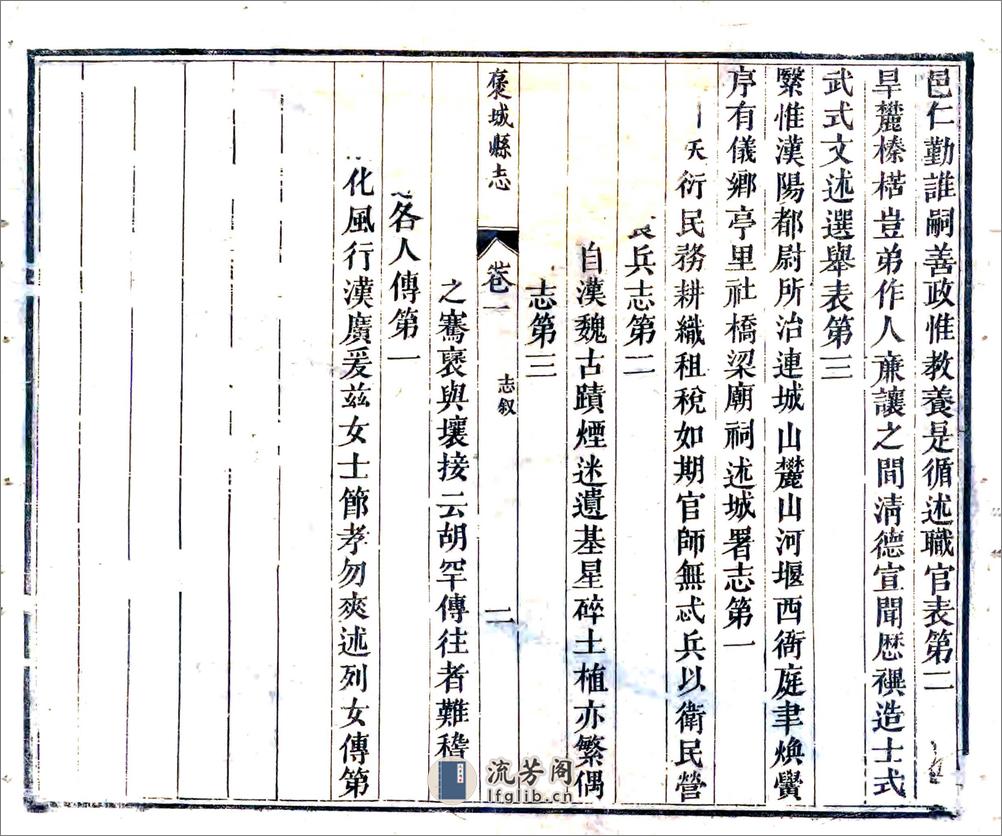 邑仁勤誰嗣善政惟教養是循述職官表第二
旱麓榛楛豈弟作人廉讓之間清德宣聞歷禩造士式
武式文述選舉表第三
繄惟漢陽都尉所治連城山麓山河堰西衙庭聿煥黌
序有儀鄉亭里社橋梁廟祠述城署志第一
衍民務耕織租稅如期官師無忒兵以衛民營
兵志第二
自漢魏古蹟煙迷遺基星碎土植亦繁偶
志第三
褒城縣志
卷一
志叙
二
之騫褒與壤接云胡罕傳往者難稽
各人傳第一
化風行漢廣爰茲女士節孝勿爽述列女傳第
流芳阁
lfglib.cn